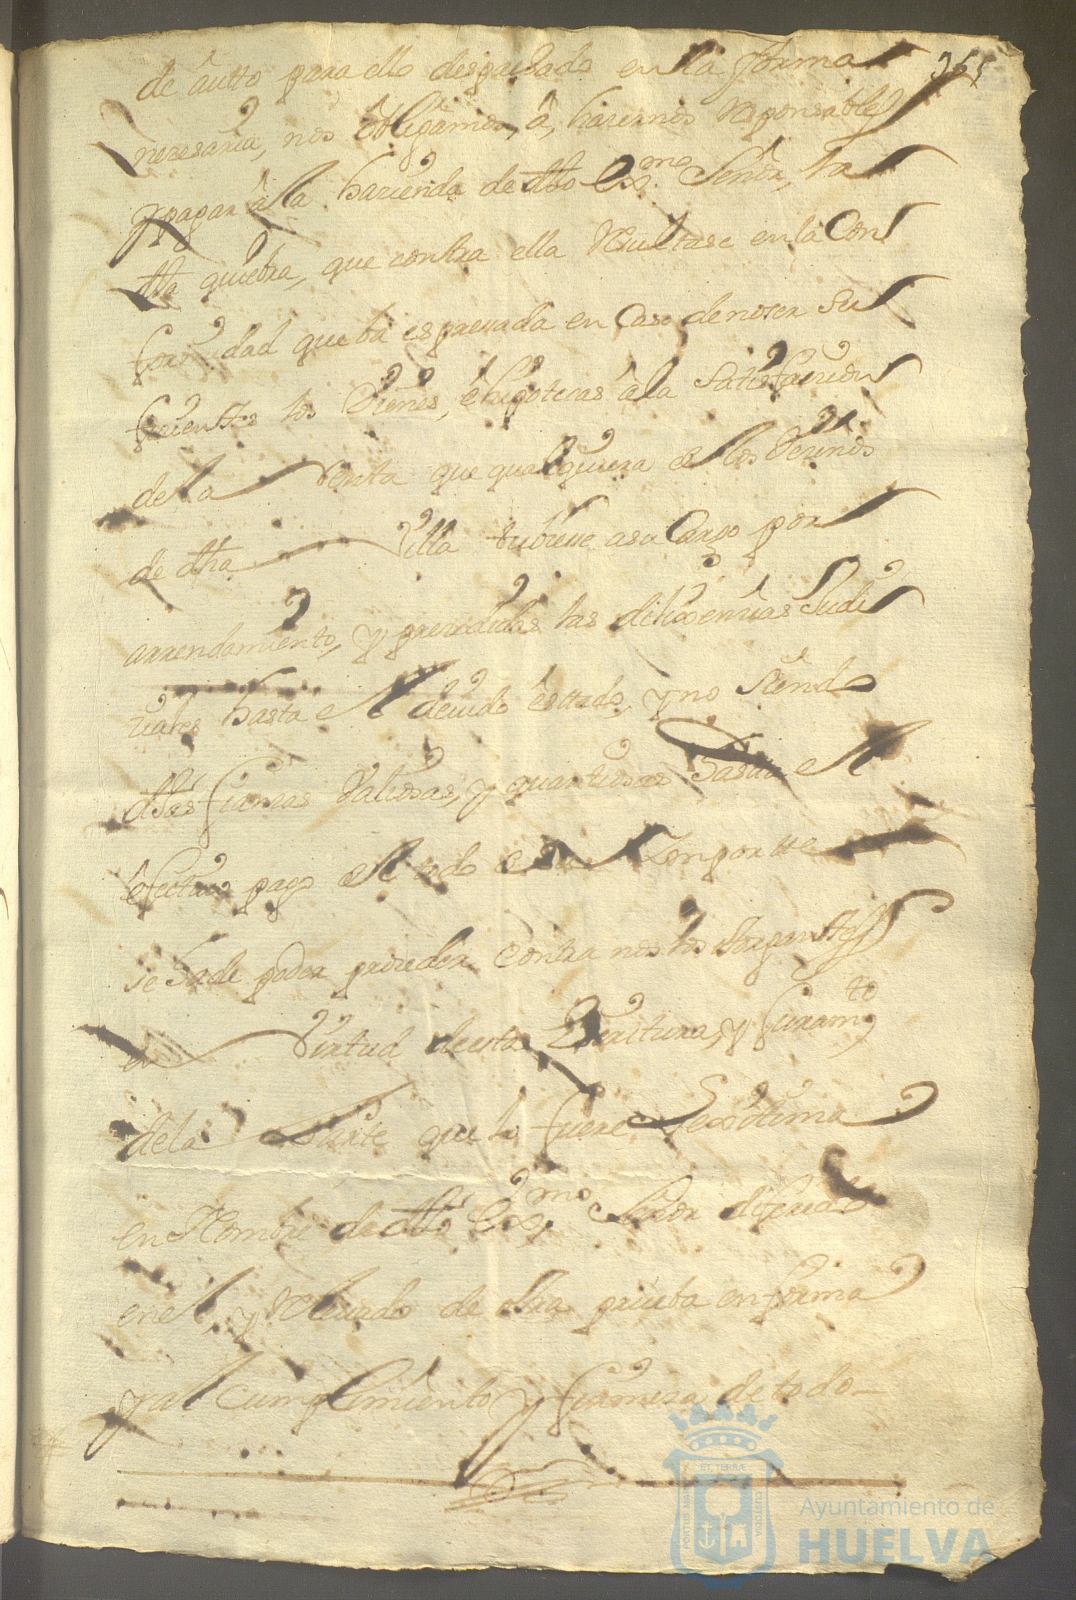 365
de autto para ello despachado en la forma
neresaria, nos obligamos, â, harernos responsables
y pagar â la harienda de dho Exmo. Señor, la
dha quiebra, que contra ella resultase en la Con
formidad que ba espresada en Caso de no ser Su
firientes los Vienes, ê hipoteras â la Satisfarion
de la Renta que qualquiera de los Verinos
de dha Villa tubiere a su Cargo por
arrendamiento, y preredidas las dilixenrias Judi
riales hasta el devido êsttado, y no siendo
dhas firmas Valiosas, y quantiosas hasta el
êfectivo pago del todo de su Ymportte
se ha de poder proceder Contra nos los otorganttes
en Virtud de esta Escritura, y Juramto
de la partte que lo fuere Lexitima
en Nombre de dho Exmo. Señor diferido
en el, y relevado de otra prueba en forma
y al Cumplimiento y firmesa de todo
ET TERRÆ
PORTUS MARIS
CUSTODIA
Ayuntamiento de
HUELVA